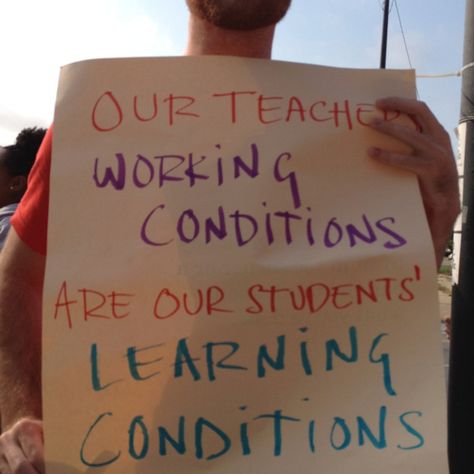 OUR TEACHE
WORKING
CONDITIONS
ARE OUR STUDENTS'
LEARNING
CONDITIONS